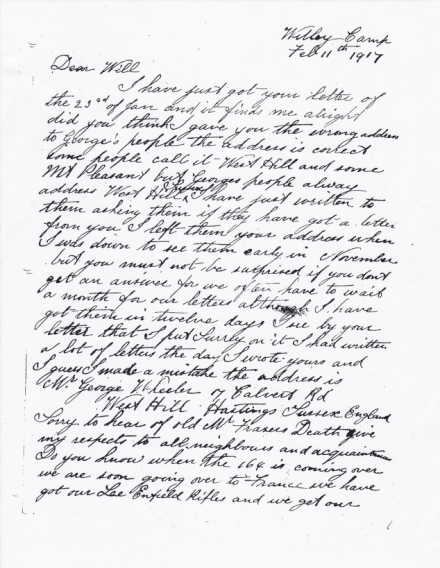 Witley Camp
Feb 11th 1917
Dear Will
I have just got your letter of
the 23rd of Jan and it finds me alright
did you think I gave you the wrong address
to George's people the address is correct
some people call it West Hill and some
Mt Pleasant but Georges people alway
address West Hill I have just written to
them asking them if they have got a letter
from you I left them your address when
I was down to see them early in November
but you must not be surprised if you don't
get an answer for we often have to wait
a month for our letters although I have
got them in twelve days I see by your
letter that I put Surrey on it I had written
a lot of letters the day I wrote yours and
I guess I made a mistake the address is
Mr George Wheeler 07 Calvert Rd
West Hill Hastings Sussex England
Sorry to hear of old Mr Frasers Death give
my respects to all neighbours and acquaintance
Do you know when the 169 is coming over
we are soon going over to France we have
got our Lee Enfield Rifles and we get our